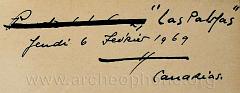 "Las Palmas"
Jeudi 6 Février 1969
Canarias.
www.archeophone.org